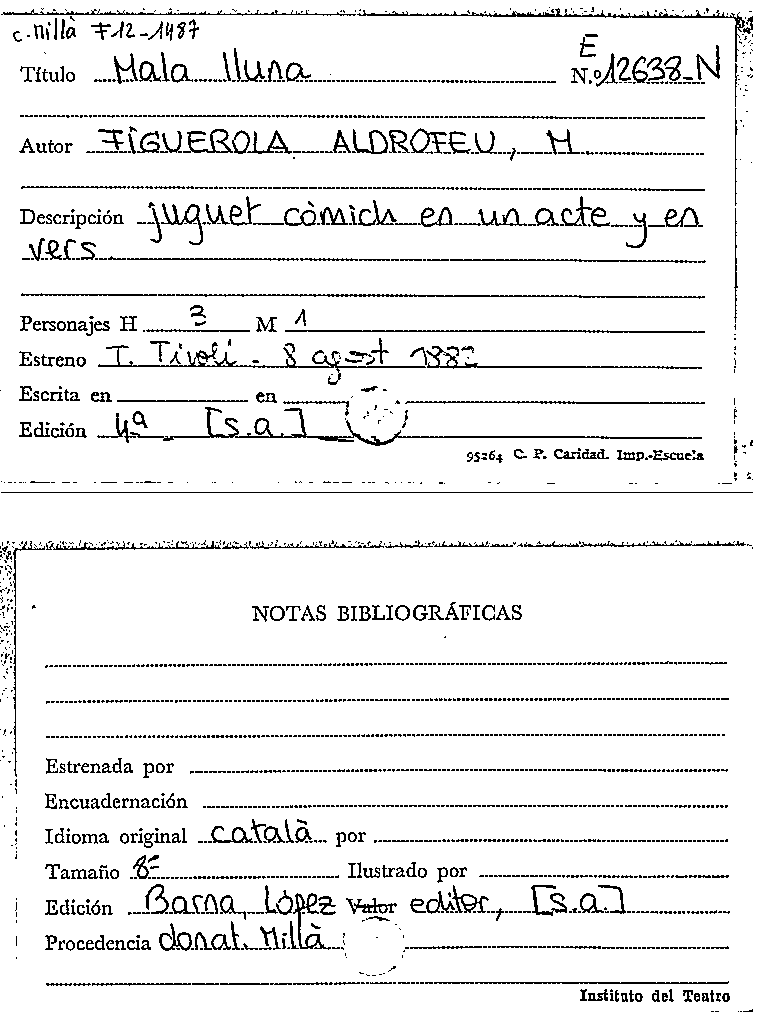 c. Millà F12-1487
Título Mala lluna E N.º 12638-N
Autor FIGUEROLA ALDROFEU, M.
Descripción juguet còmich en un acte y en
vers
Personajes H 3 M 1
Estreno T. Tivoli - 8 agost 1882
Escrita en en
Edición 4ª - [s.a.]
95264 C. P. Caridad. Imp.-Escuela
NOTAS BIBLIOGRÁFICAS
Estrenada por
Encuadernación
Idioma original català por
Tamaño 8º Ilustrado por
Edición Barna, López Valor editor, [s.a.]
Procedencia donat. Millà
Instituto del Teatro